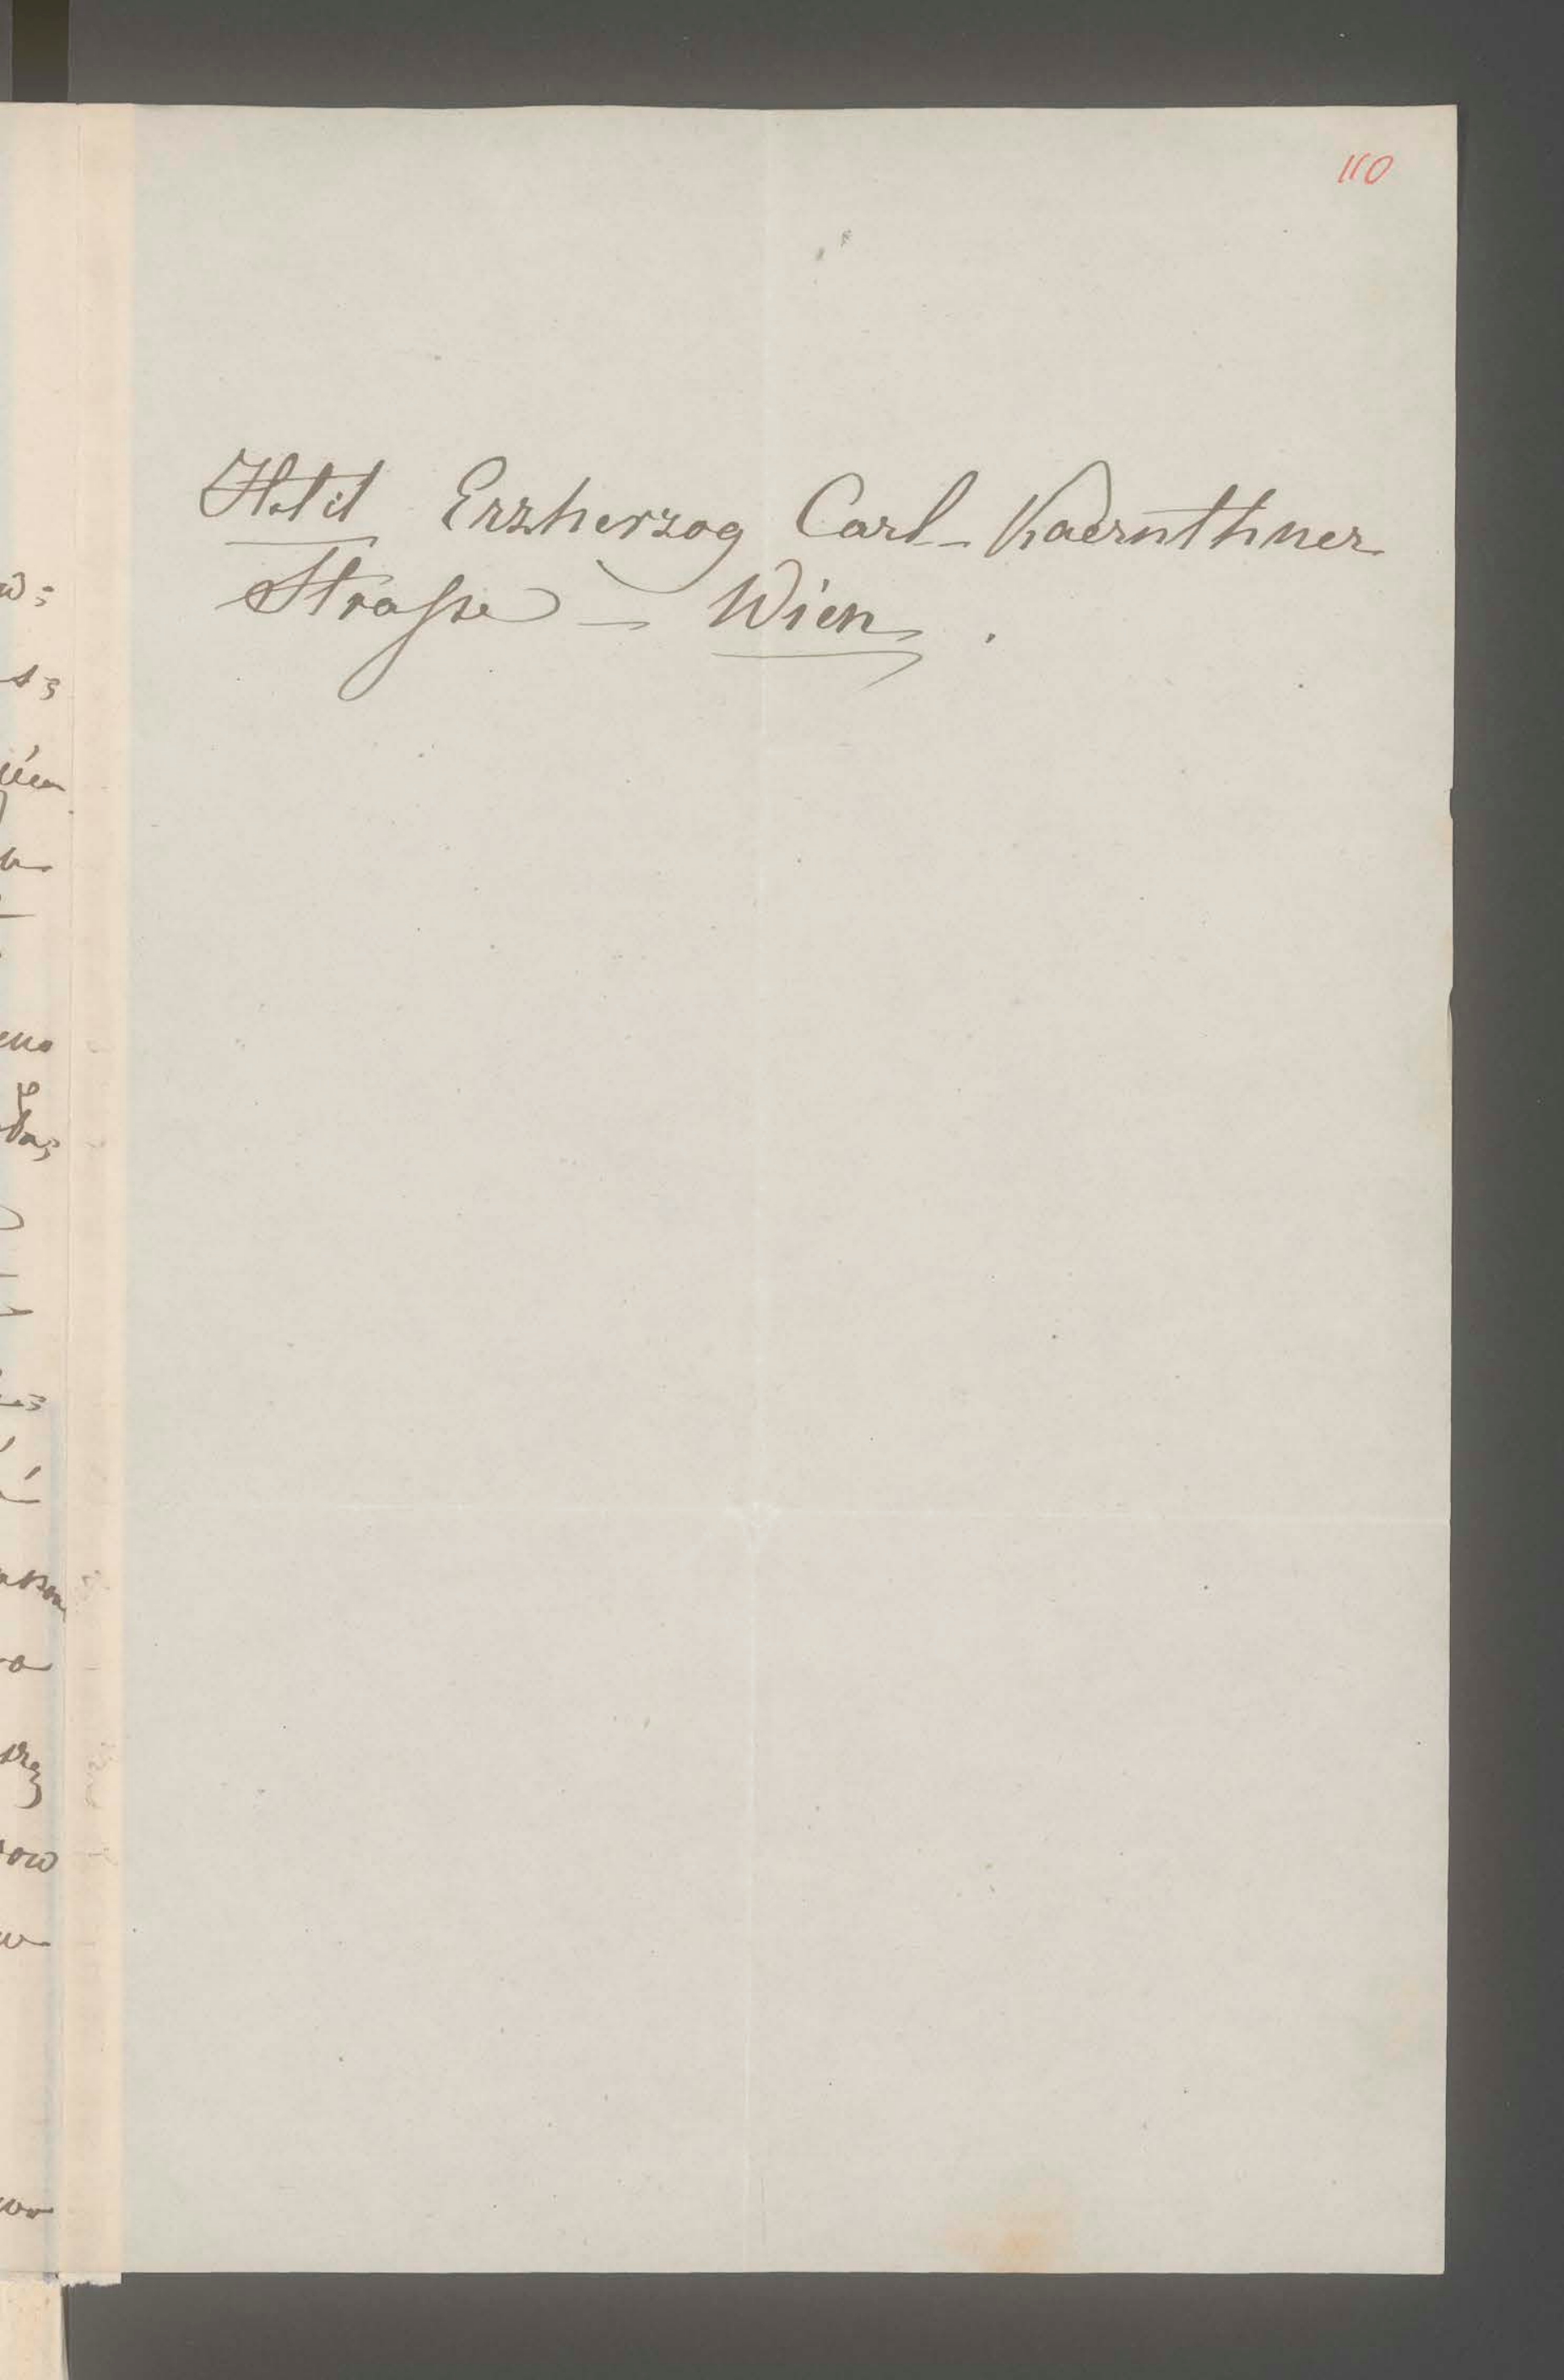 110
Hotel Erzherzog Carl - Kaernthner
Straſse - Wien .